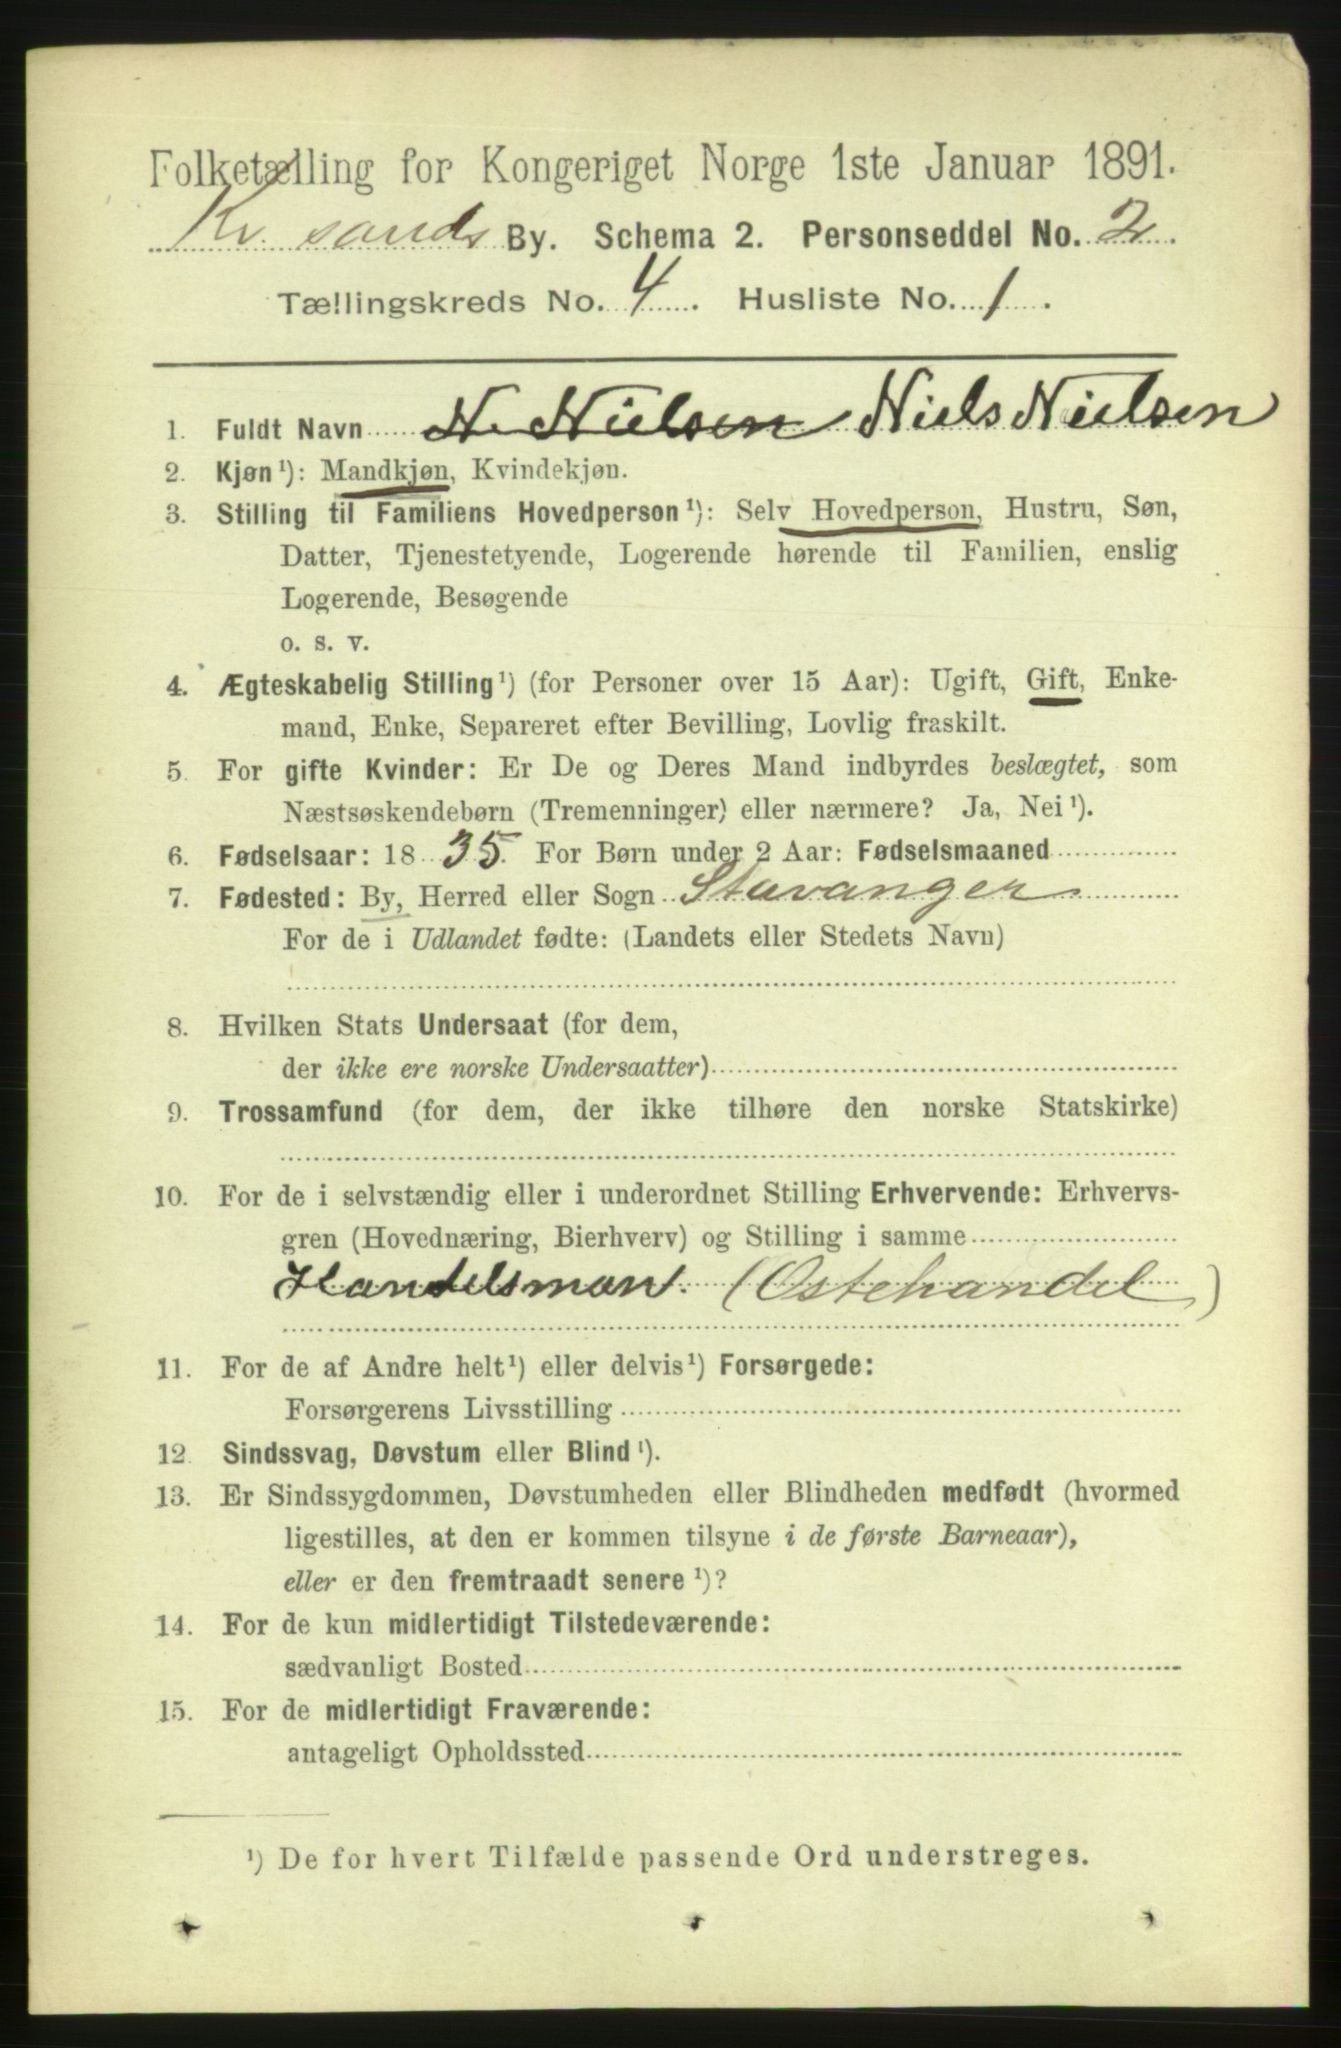 Folketælling for Kongeriget Norge 1ste Januar 1891.
Kr. sands By. Schema 2. Personseddel No. 2.
Tællingskreds No. 4. Husliste No. 1.
1. Fuldt Navn N. Nielsen Niels Nielsen
2. Kjøn¹): Mandkjøn, Kvindekjøn.
3. Stilling til Familiens Hovedperson¹): Selv Hovedperson, Hustru, Søn,
Datter, Tjenestetyende, Logerende hørende til Familien, enslig
Logerende, Besøgende
o. s. v.
4. Ægteskabelig Stilling¹) (for Personer over 15 Aar): Ugift, Gift, Enke-
mand, Enke, Separeret efter Bevilling, Lovlig fraskilt.
5 For gifte Kvinder: Er De og Deres Mand indbyrdes beslægtet, som
Næstsøskendebørn (Tremenninger) eller nærmere? Ja, Nei¹).
6. Fødselsaar: 1835. For Børn under 2 Aar: Fødselsmaaned
7. Fødested: By, Herred eller Sogn Stavanger
For de i Udlandet fødte: (Landets eller Stedets Navn)
8. Hvilken Stats Undersaat (for dem,
der ikke ere norske Undersaatter)
9. Trossamfund (for dem, der ikke tilhøre den norske Statskirke)
10. For de i selvstændig eller i underordnet Stilling Erhvervende: Erhvervs-
gren (Hovednæring, Bierhverv) og Stilling i samme
Handelsman. (Ostehandel)
11. For de af Andre helt¹) eller delvis¹) Forsørgede:
Forsørgerens Livsstilling
12. Sindssvag, Døvstum eller Blind¹).
13. Er Sindssygdommen, Døvstumheden eller Blindheden medfødt (hvormed
ligestilles, at den er kommen tilsyne i de første Barneaar),
eller er den fremtraadt senere¹)?
14. For de kun midlertidigt Tilstedeværende:
sædvanligt Bosted
15. For de midlertidigt Fraværende:
antageligt Opholdssted
¹) De for hvert Tilfælde passende Ord understreges.